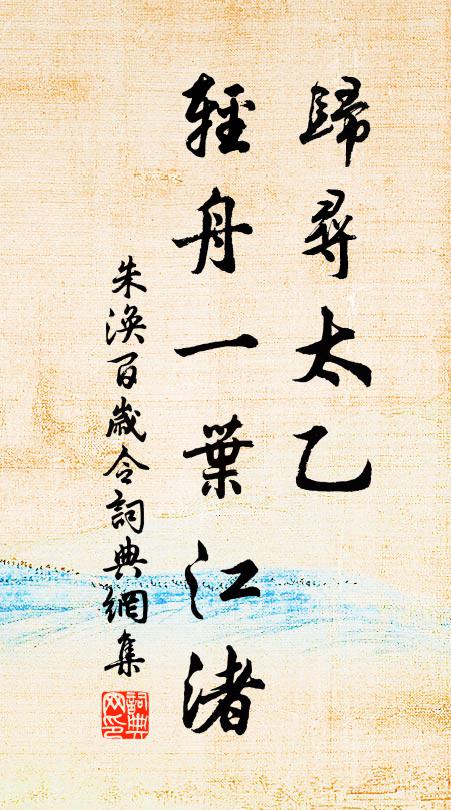 歸尋太乙
輕舟一葉江渚
朱渙百歲令詞典網集
詞典網印